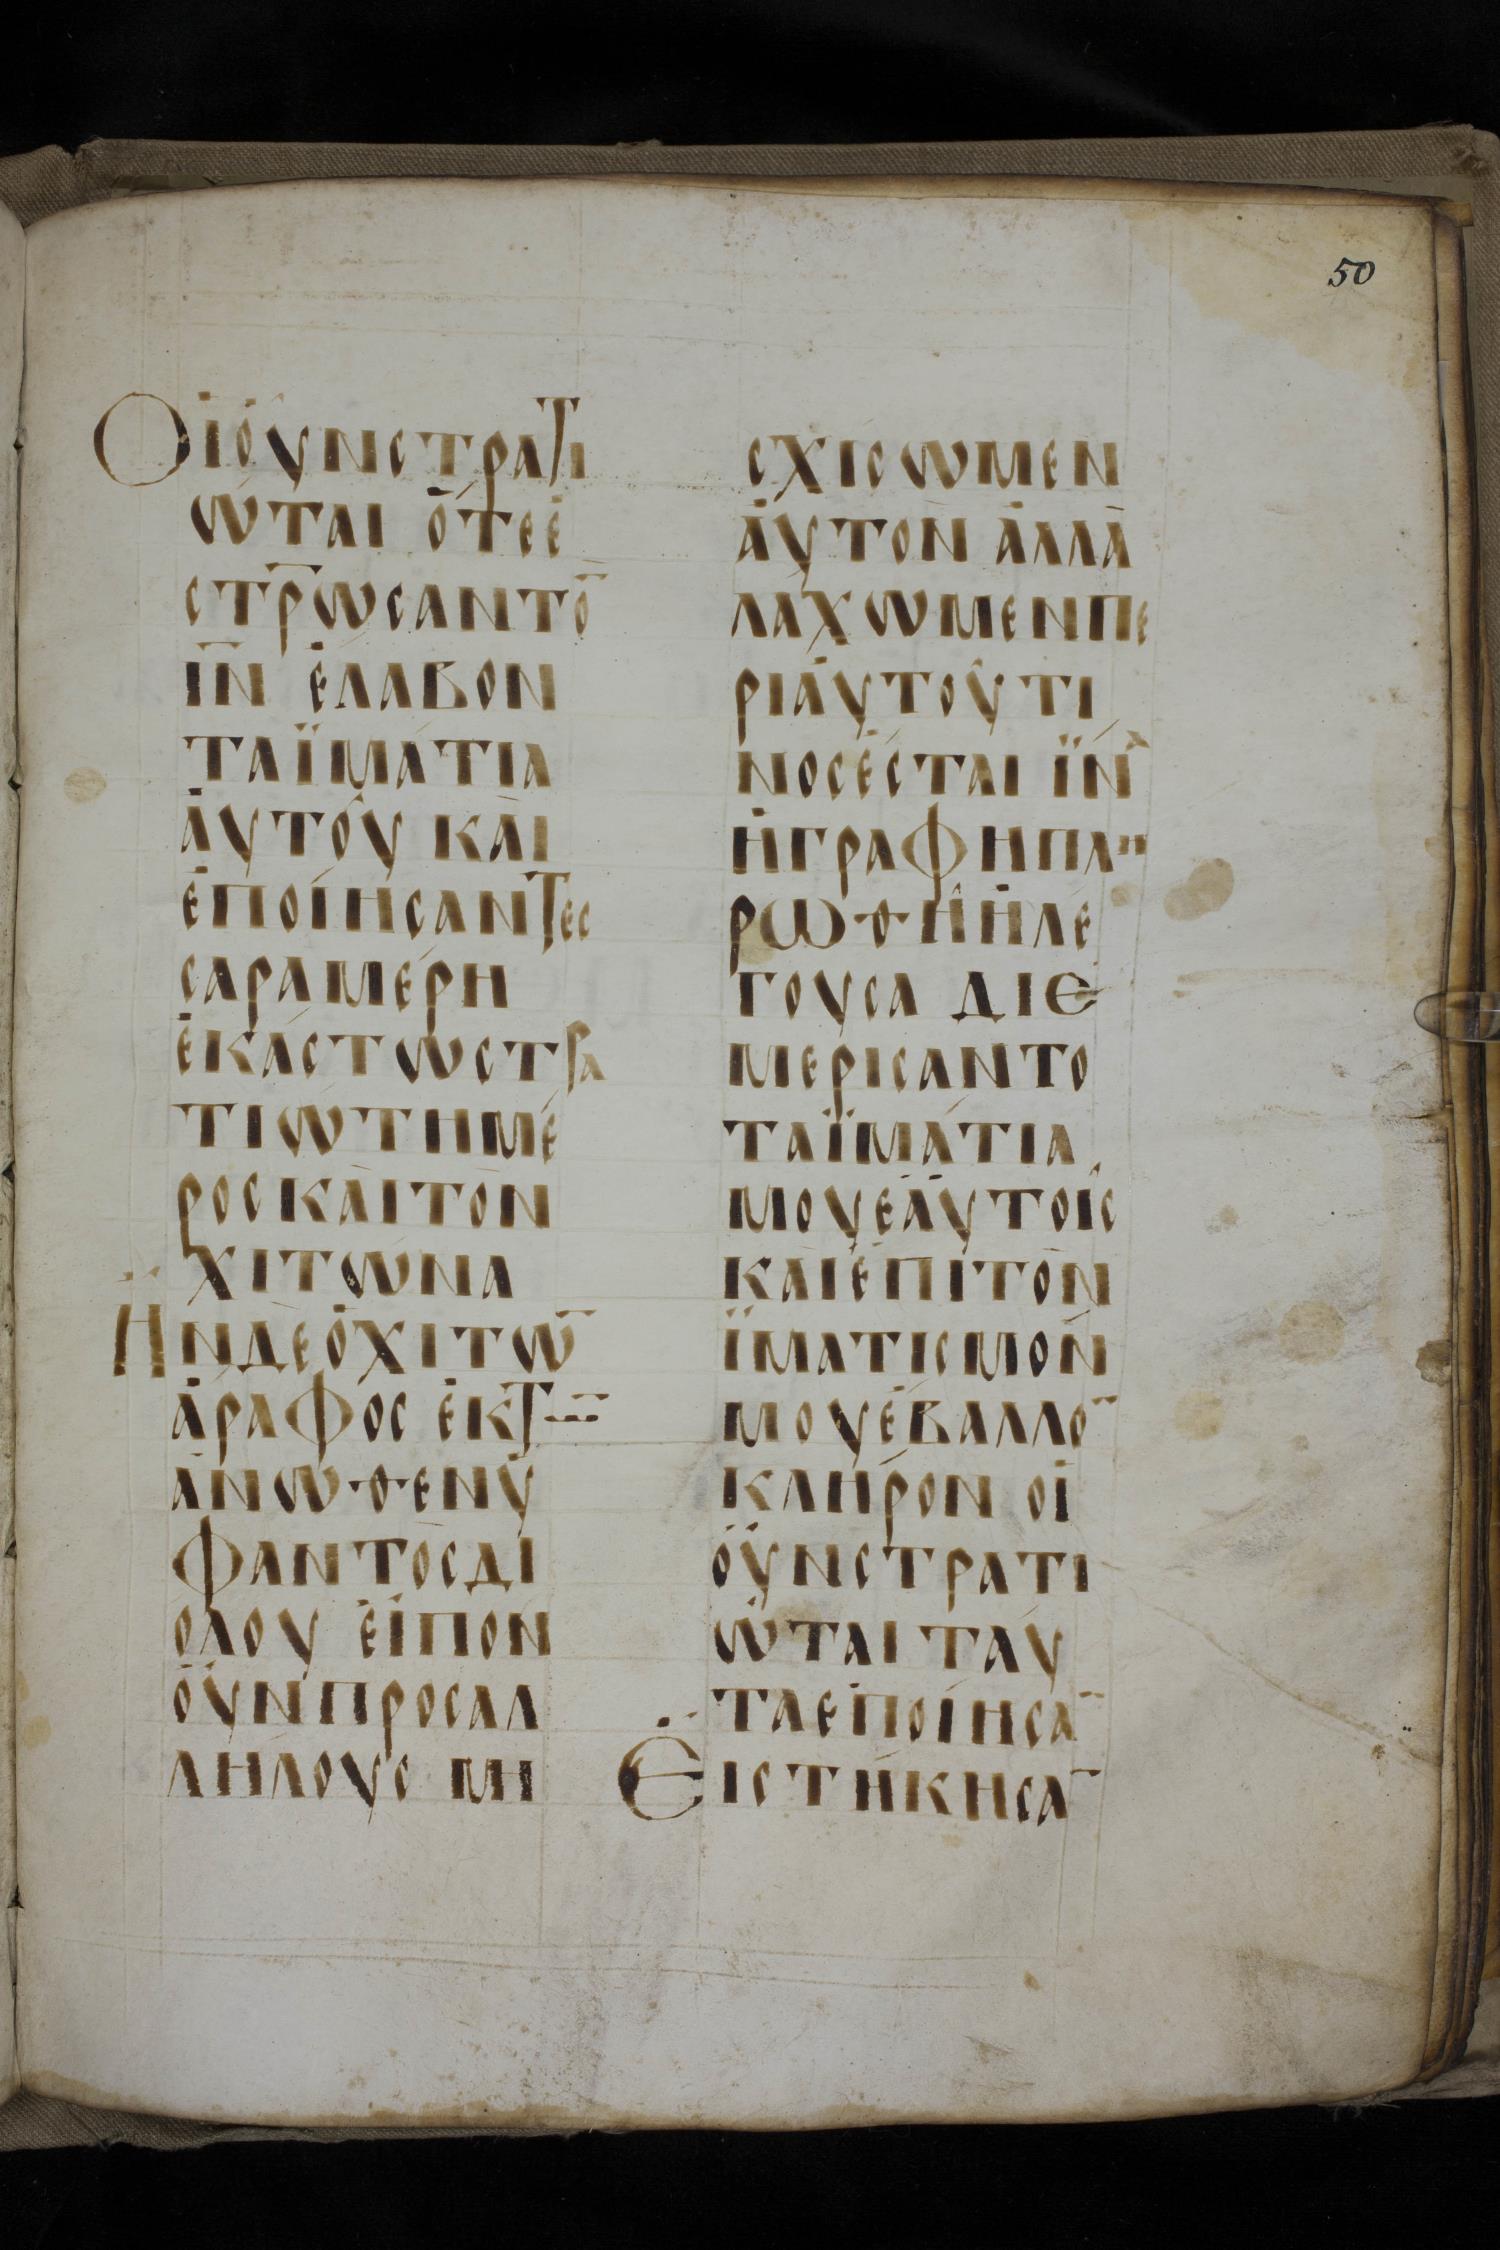 50
Οἱ οὖν στρατι
ῶται ὅτε ἐ
στρ̅ωσαν το̅
ιν̅ ἔλαβον
τα ϊμάτια
ἀυτοῦ κὰι
ἐποίησαν τες
σαρα μέρη
ἑκάστω στρα
τιώτη μέ
ρος κὰι τὸν
χιτῶνα
Ἦν δὲ ὁ χιτω̅
ἄραφος ἐκ τω̅
ἄνωθεν ὑ
φαντὸς δι
ολου εἶπον
οὖν προς αλ
λήλους μη
σχίσωμεν
ἀυτὸν ἀλλὰ
λάχωμεν πε
ρι ἀυτοῦ τί
νος ἔσται ϊν̀α
ἡ γραφη πλη
ρωθῆ ἡ λέ
γουσα διε
μερισαντο
τα ϊμάτια
μου ἑἀυτοῖς
κὰι ἐπι τὸν
ϊματισμόν
μου ἔβαλλο̅
κλῆρον οἱ
οὖν στρατι
ῶται ταῦ
τα ἐποίησα̅
Ἑιστήκησα̅